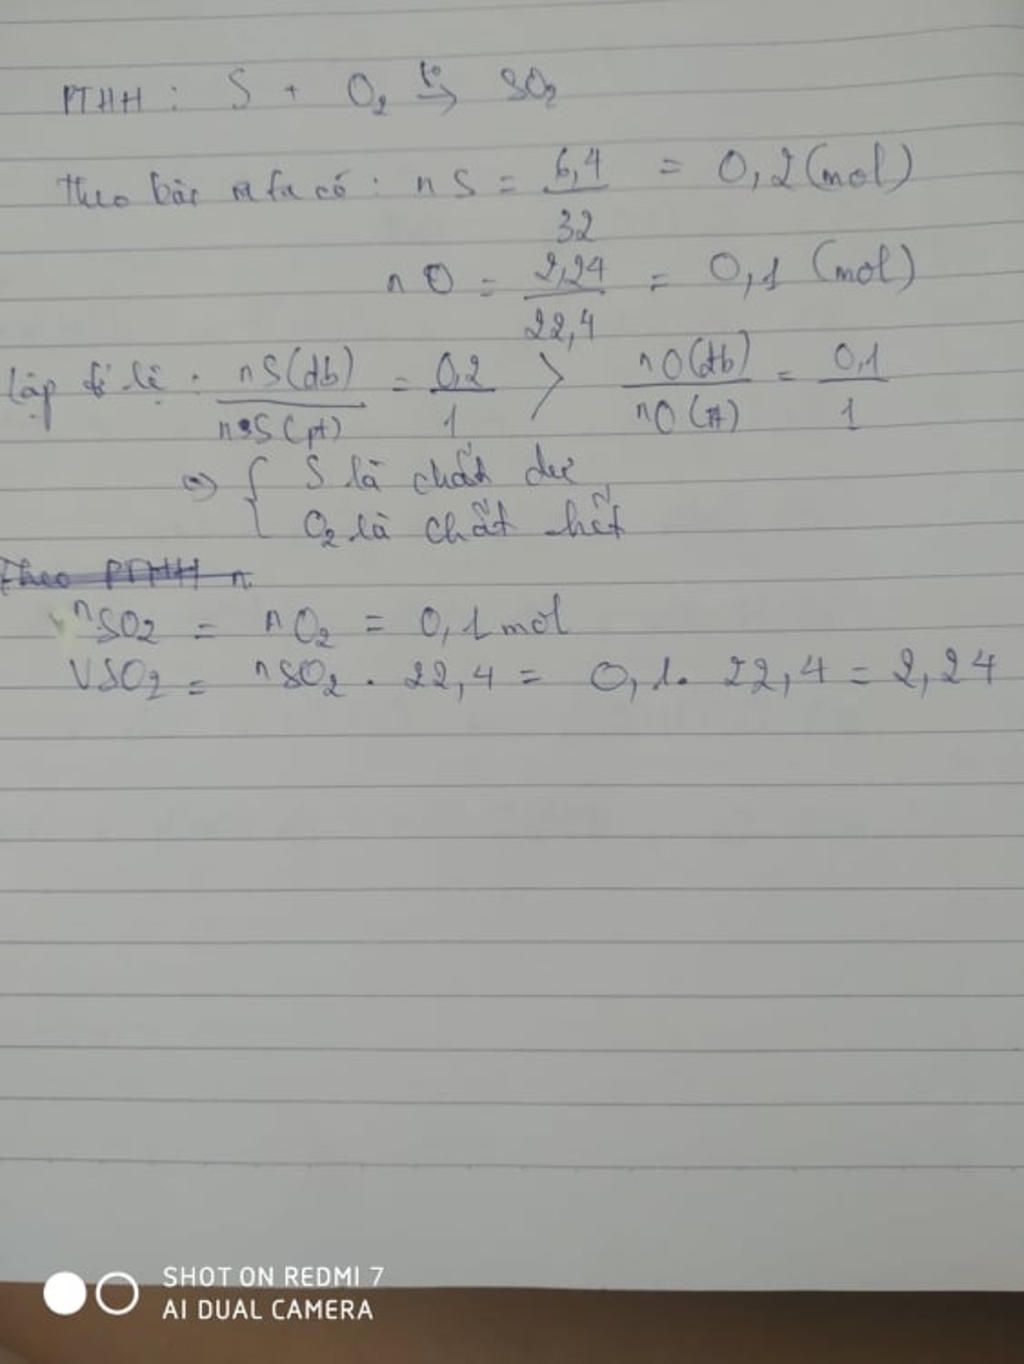 PTHH : S + O2 t° → SO2
Theo bài ra ta có : nS = 6,4 / 32 = 0,2 (mol)
nO = 2,24 / 22,4 = 0,1 (mol)
Lập tỉ lệ : nS(db) / nS(pt) = 0,2 / 1 > nO(db) / nO(pt) = 0,1 / 1
=> { S là chất dư
O2 là chất hết
Theo PTHH n
nSO2 = nO2 = 0,1 mol
VSO2 = nSO2 . 22,4 = 0,1. 22,4 = 2,24
SHOT ON REDMI 7
AI DUAL CAMERA